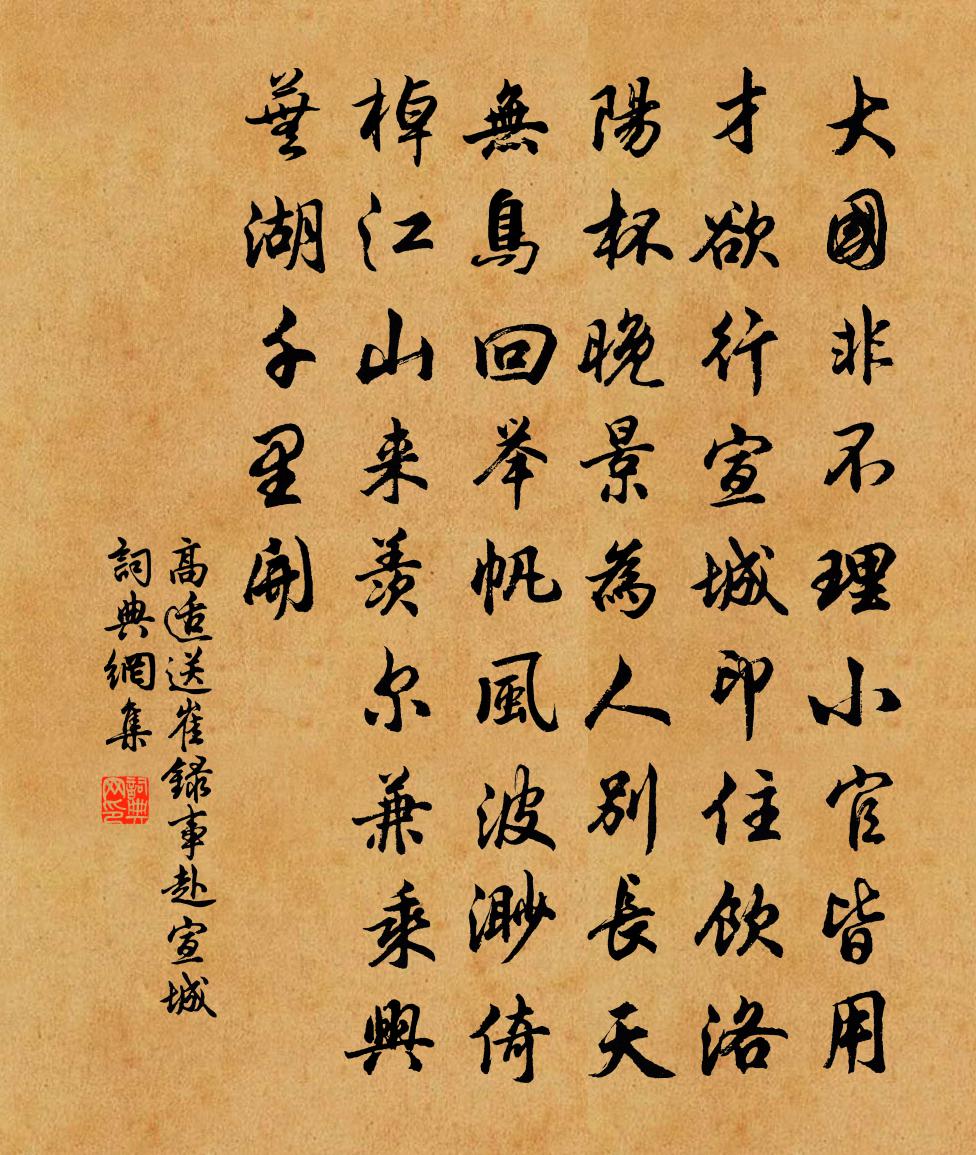 大國非不理小官皆用
才欲行宣城印住飲洛
陽杯晚景為人別長天
無鳥回举帆風波渺倚
棹江山来羨尔兼乘興
蕪湖千里開
高適送崔録事赴宣城
詞典網集
詞典网印